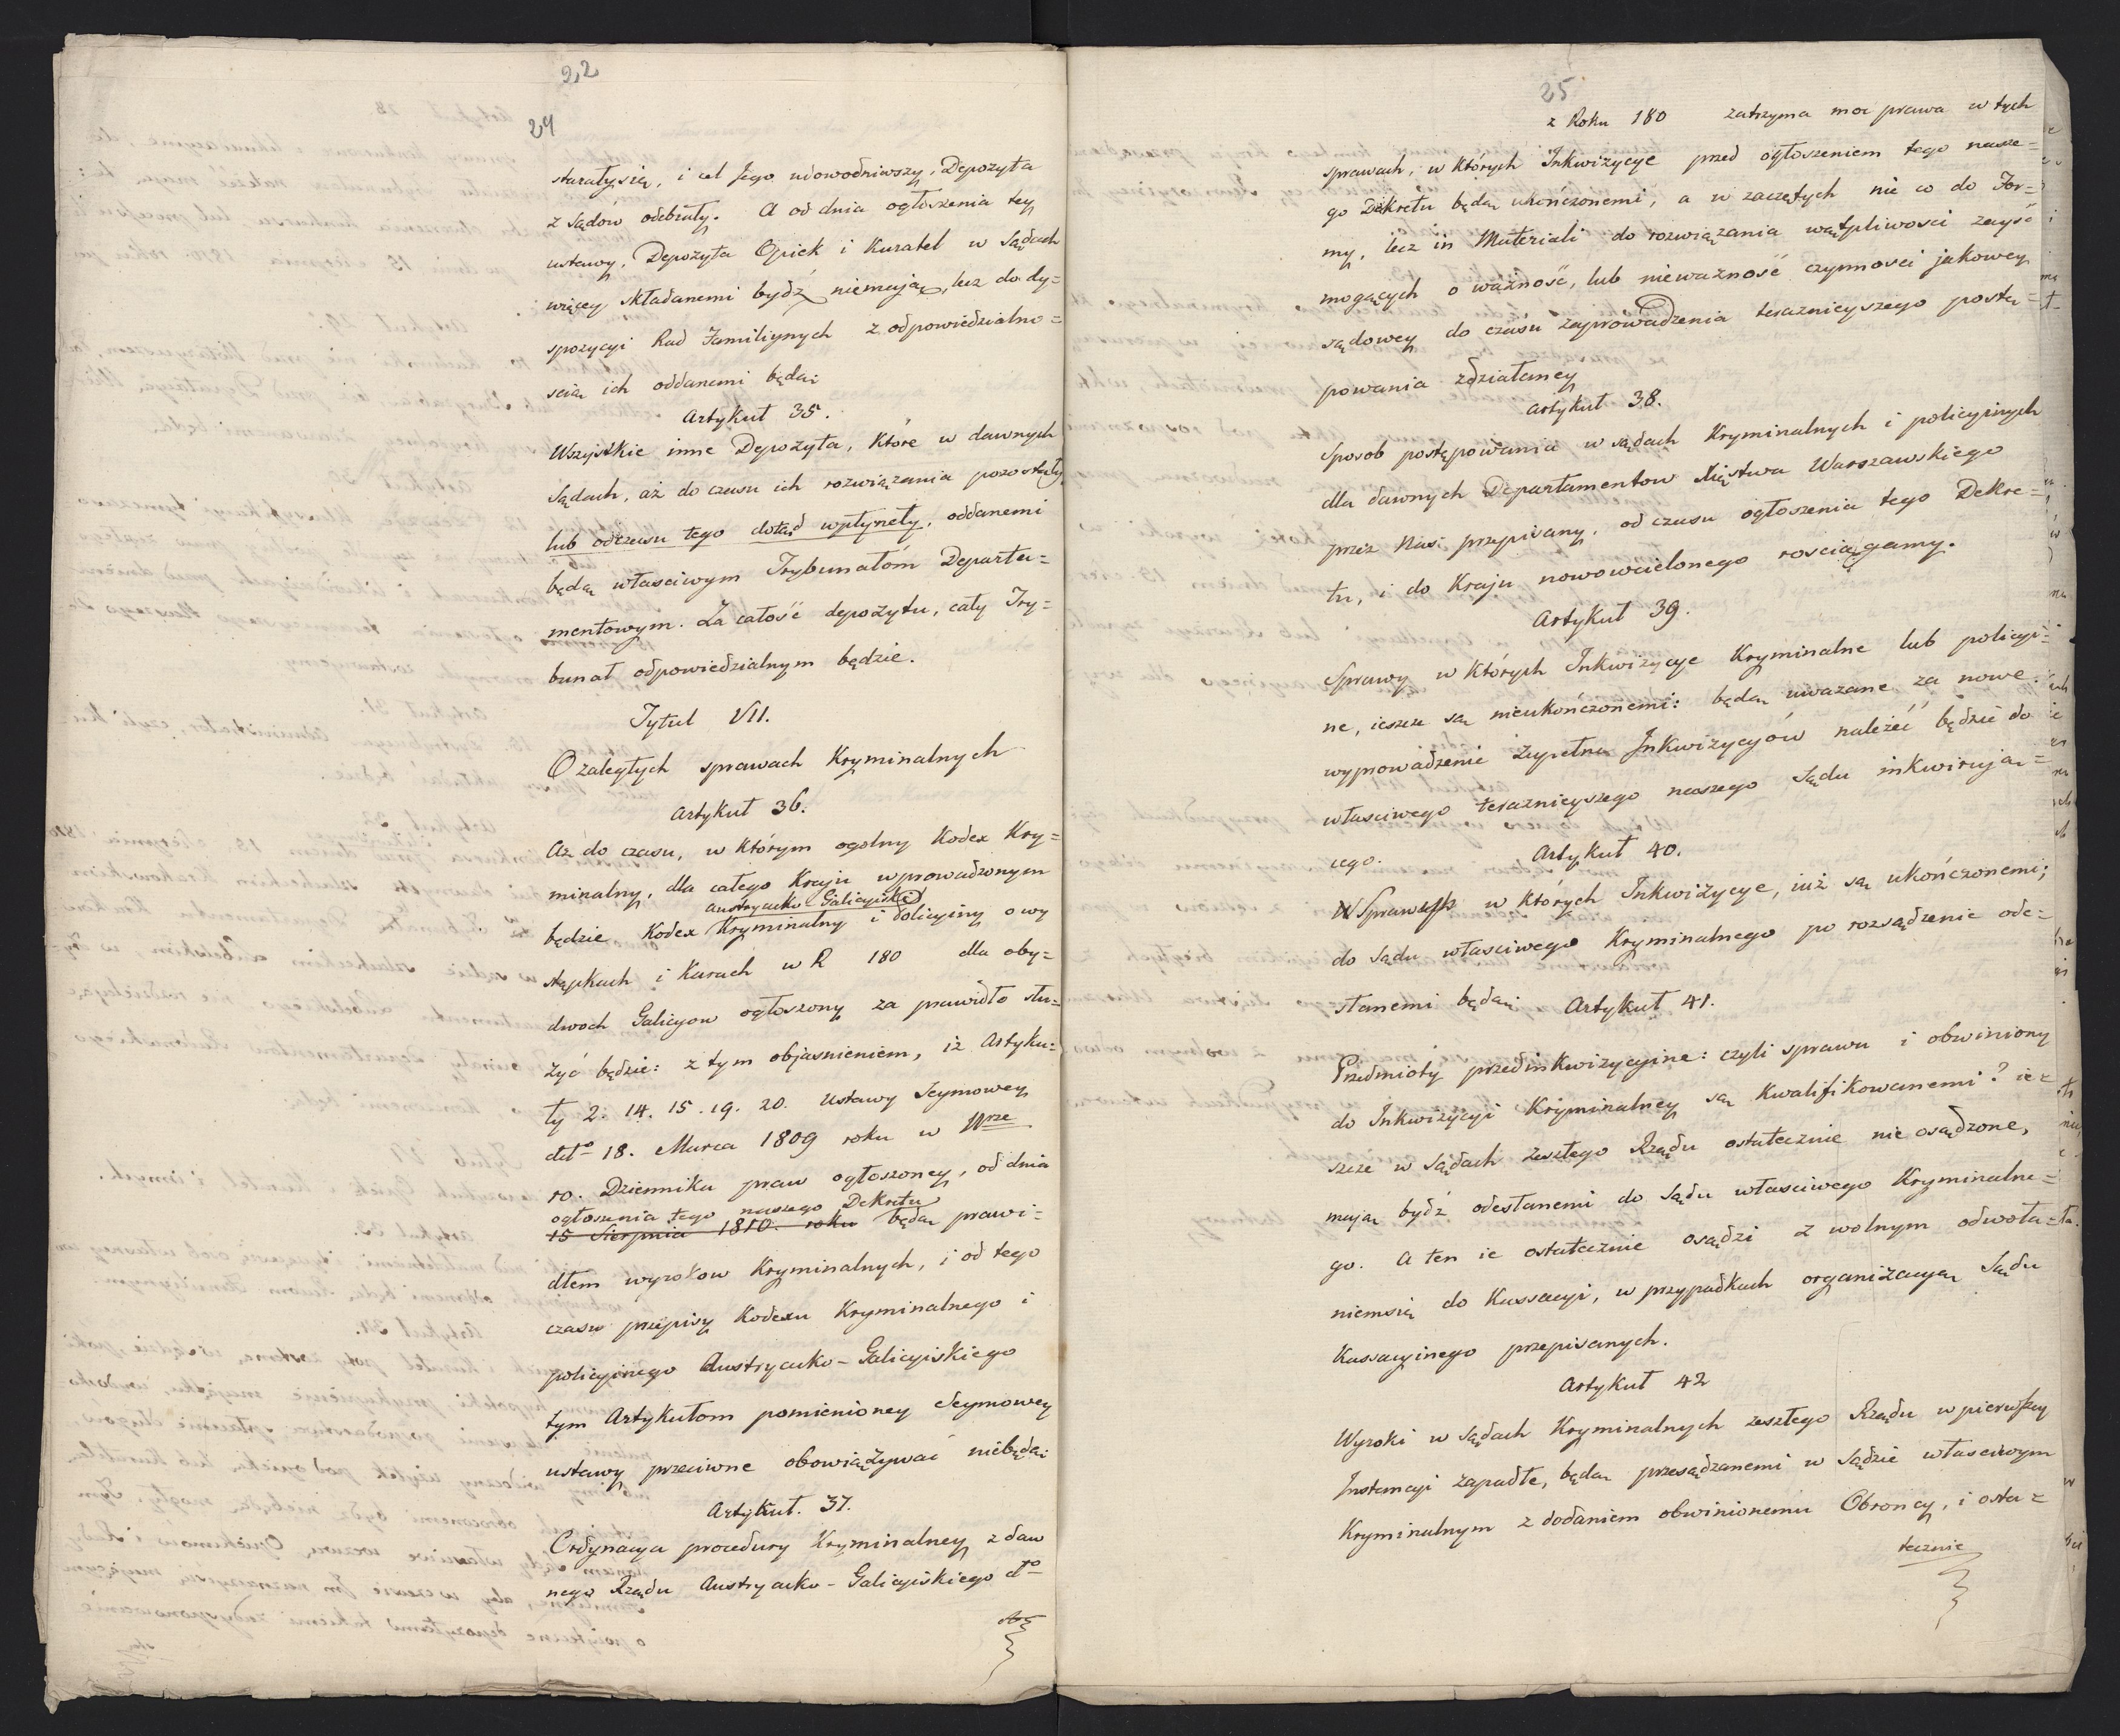 22
24
starały się, i cel Jego udowodniwszy, Depozyta
z Sądów odebrały. A od dnia ogłoszenia tey
ustawy, Depozyta Opiek i Kuratel w Sądach
więcey składanemi bydź niemaią, lecz do dy=
spozycyi Rad Familiynych z odpowiedzialno=
scią ich oddanemi będą.
Artykuł 35.
Wszystkie inne Depozyta, które w dawnych
Sądach, aż do czasu ich rozwiązania pozostały
lub od czasu tego dotąd wpłynęły, oddanemi
będą własciwym Trybunałom Departa=
mentowym. Za całość depozytu, cały Try=
bunał odpowiedzialnym będzie.
Tytuł VII.
O zaległych sprawach Kryminalnych
Artykuł 36.
Aż do czasu, w którym ogolny Kodex Kry=
minalny, dla całego Kraju wprowadzonym
austryacko Galicyiski
będzie Kodex Kryminalny i Policyiny o wy
stąpkach i Karach w R 180 dla oby=
dwoch Galicyow ogłoszony za prawidło słu=
żyć będzie: z tym objasnieniem, iż Artyku=
ły 2. 14. 15. 19. 20. Ustawy Seymowey
dtto 18. Marca 1809 roku w Nrze
10. Dziennika praw ogłoszoney, od dnia
ogłoszenia tego naszego Dekretu
15 Sierpnia 1810. roku będą prawi=
dłem wyrokow Kryminalnych, i od tego
czasu przepisy Kodexu Kryminalnego i
policyinego Austryacko-Galicyiskiego
tym Artykułom pomienioney Seymowey
ustawy przeciwne obowiązywać niebędą.
Artykuł. 37.
Ordynacya procedury Kryminalney z daw
nego Rządu Austryacko-Galicyiskiego dto
25
z Roku 180 zatrzyma moc prawa w tych
sprawach, w których Inkwizycye przed ogłoszeniem tego nasze=
go Dekretu będą ukończonemi, a w zaczętych nie co do For=
my, lecz in Materiali do rozwiązania wątpliwosci zayść
mogących o ważność, lub nieważność czynnosci jakowey
sądowey do czasu zaprowadzenia teraznieyszego postę=
powania zdziałaney
Artykuł 38.
Sposob postępowania w sądach Kryminalnych i policyinych
dla dawnych Departamentow Xięstwa Warszawskiego
przez Nas przepisany, od czasu ogłoszenia tego Dekre=
tu, i do Kraju nowowcielonego rosciągamy.
Artykuł 39.
Sprawy w których Inkwizycye Kryminalne lub policyi=
ne, ieszcze są nieukończonemi: będą uważane za nowe.
wyprowadzenie Zupełne Inkwizycyjów należeć będzie do
własciwego teraznieyszego naszego Sądu inkwirują=
cego.
Artykuł 40.
W Sprawach w których Inkwizycye, iuż są ukończonemi;
do Sądu własciwego Kryminalnego po rozsądzenie ode=
słanemi będą.
Artykuł 41.
Przedmioty przedinkwizycyine: czyli sprawa i obwiniony
do Inkwizycyi Kryminalney są Kwalifikowanemi? ie=
szcze w Sądach zeszłego Rządu ostatecznie nie osądzone,
mają bydź odesłanemi do Sądu własciwego Kryminalne=
go. A ten ie ostatecznie osądzi z wolnym odwoła=
niemsię do Kassacyi, w przypadkach organizacyą Sądu
Kassacyinego przepisanych.
Artykuł 42
Wyroki w Sądach Kryminalnych zeszłego Rządu w pierwszey
Instancyi zapadłe, będą przesądzanemi w Sądzie własciwym
Kryminalnym z dodaniem obwinionemu Obroncy, i osta=
tecznie